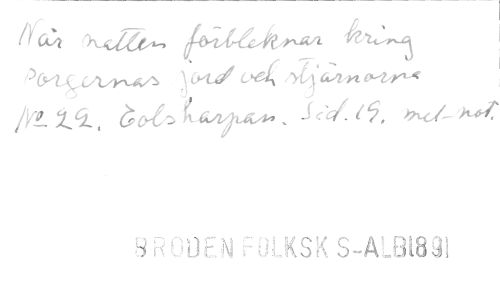 När natten förbleknar kring
sorgernas jord och stjärnorna
No 22. Eolsharpan. Sid. 19. mel-not.
BRODEN FOLKSK S-ALB1891